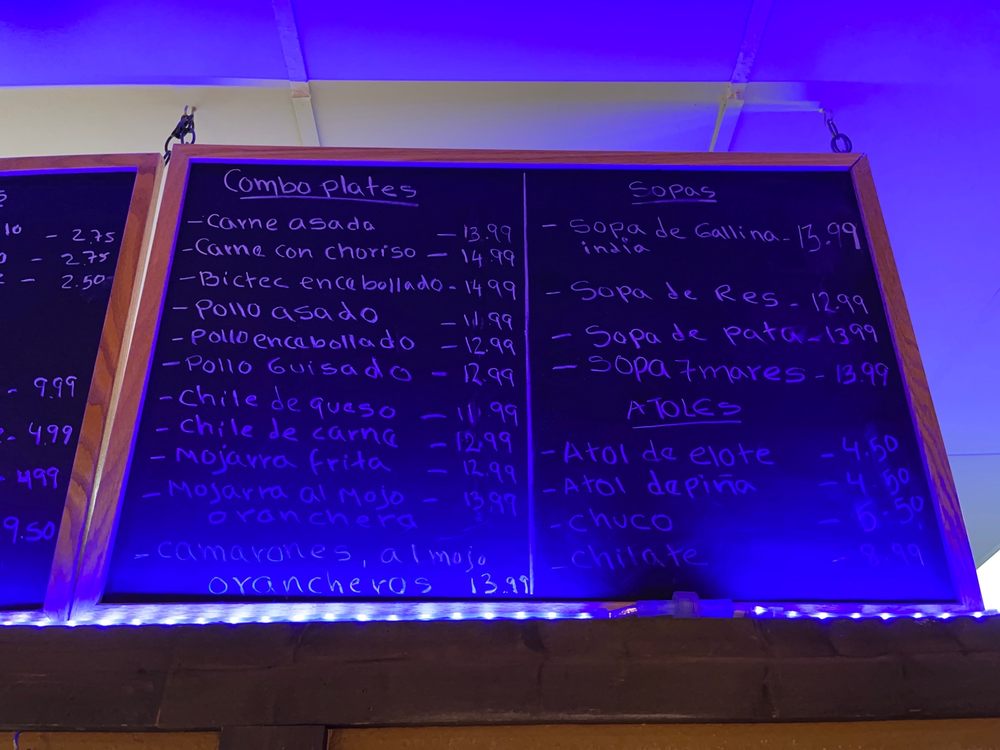 10 - 2.75
- 2.75
- 2.50
- 9.99
- 4.99
- 4.99
9.50
Combo plates
- Carne asada - 13.99
- Carne con choriso - 14.99
- Bictec encabollado - 14.99
- Pollo asado - 11.99
- Pollo encabollado - 12.99
- Pollo Guisado - 12.99
- Chile de queso - 11.99
- Chile de carne - 12.99
- Mojarra frita - 12.99
- Mojarra al Mojo - 13.99
oranchera
- Camarones, al mojo
orancheros 13.99
Sopas
- Sopa de Gallina - 13.99
india
- Sopa de Res - 12.99
- Sopa de pata - 13.99
- Sopa 7 mares - 13.99
ATOLES
- Atol de elote - 4.50
- Atol de piña - 4.50
- chuco - 5.50
- chilate - 8.99